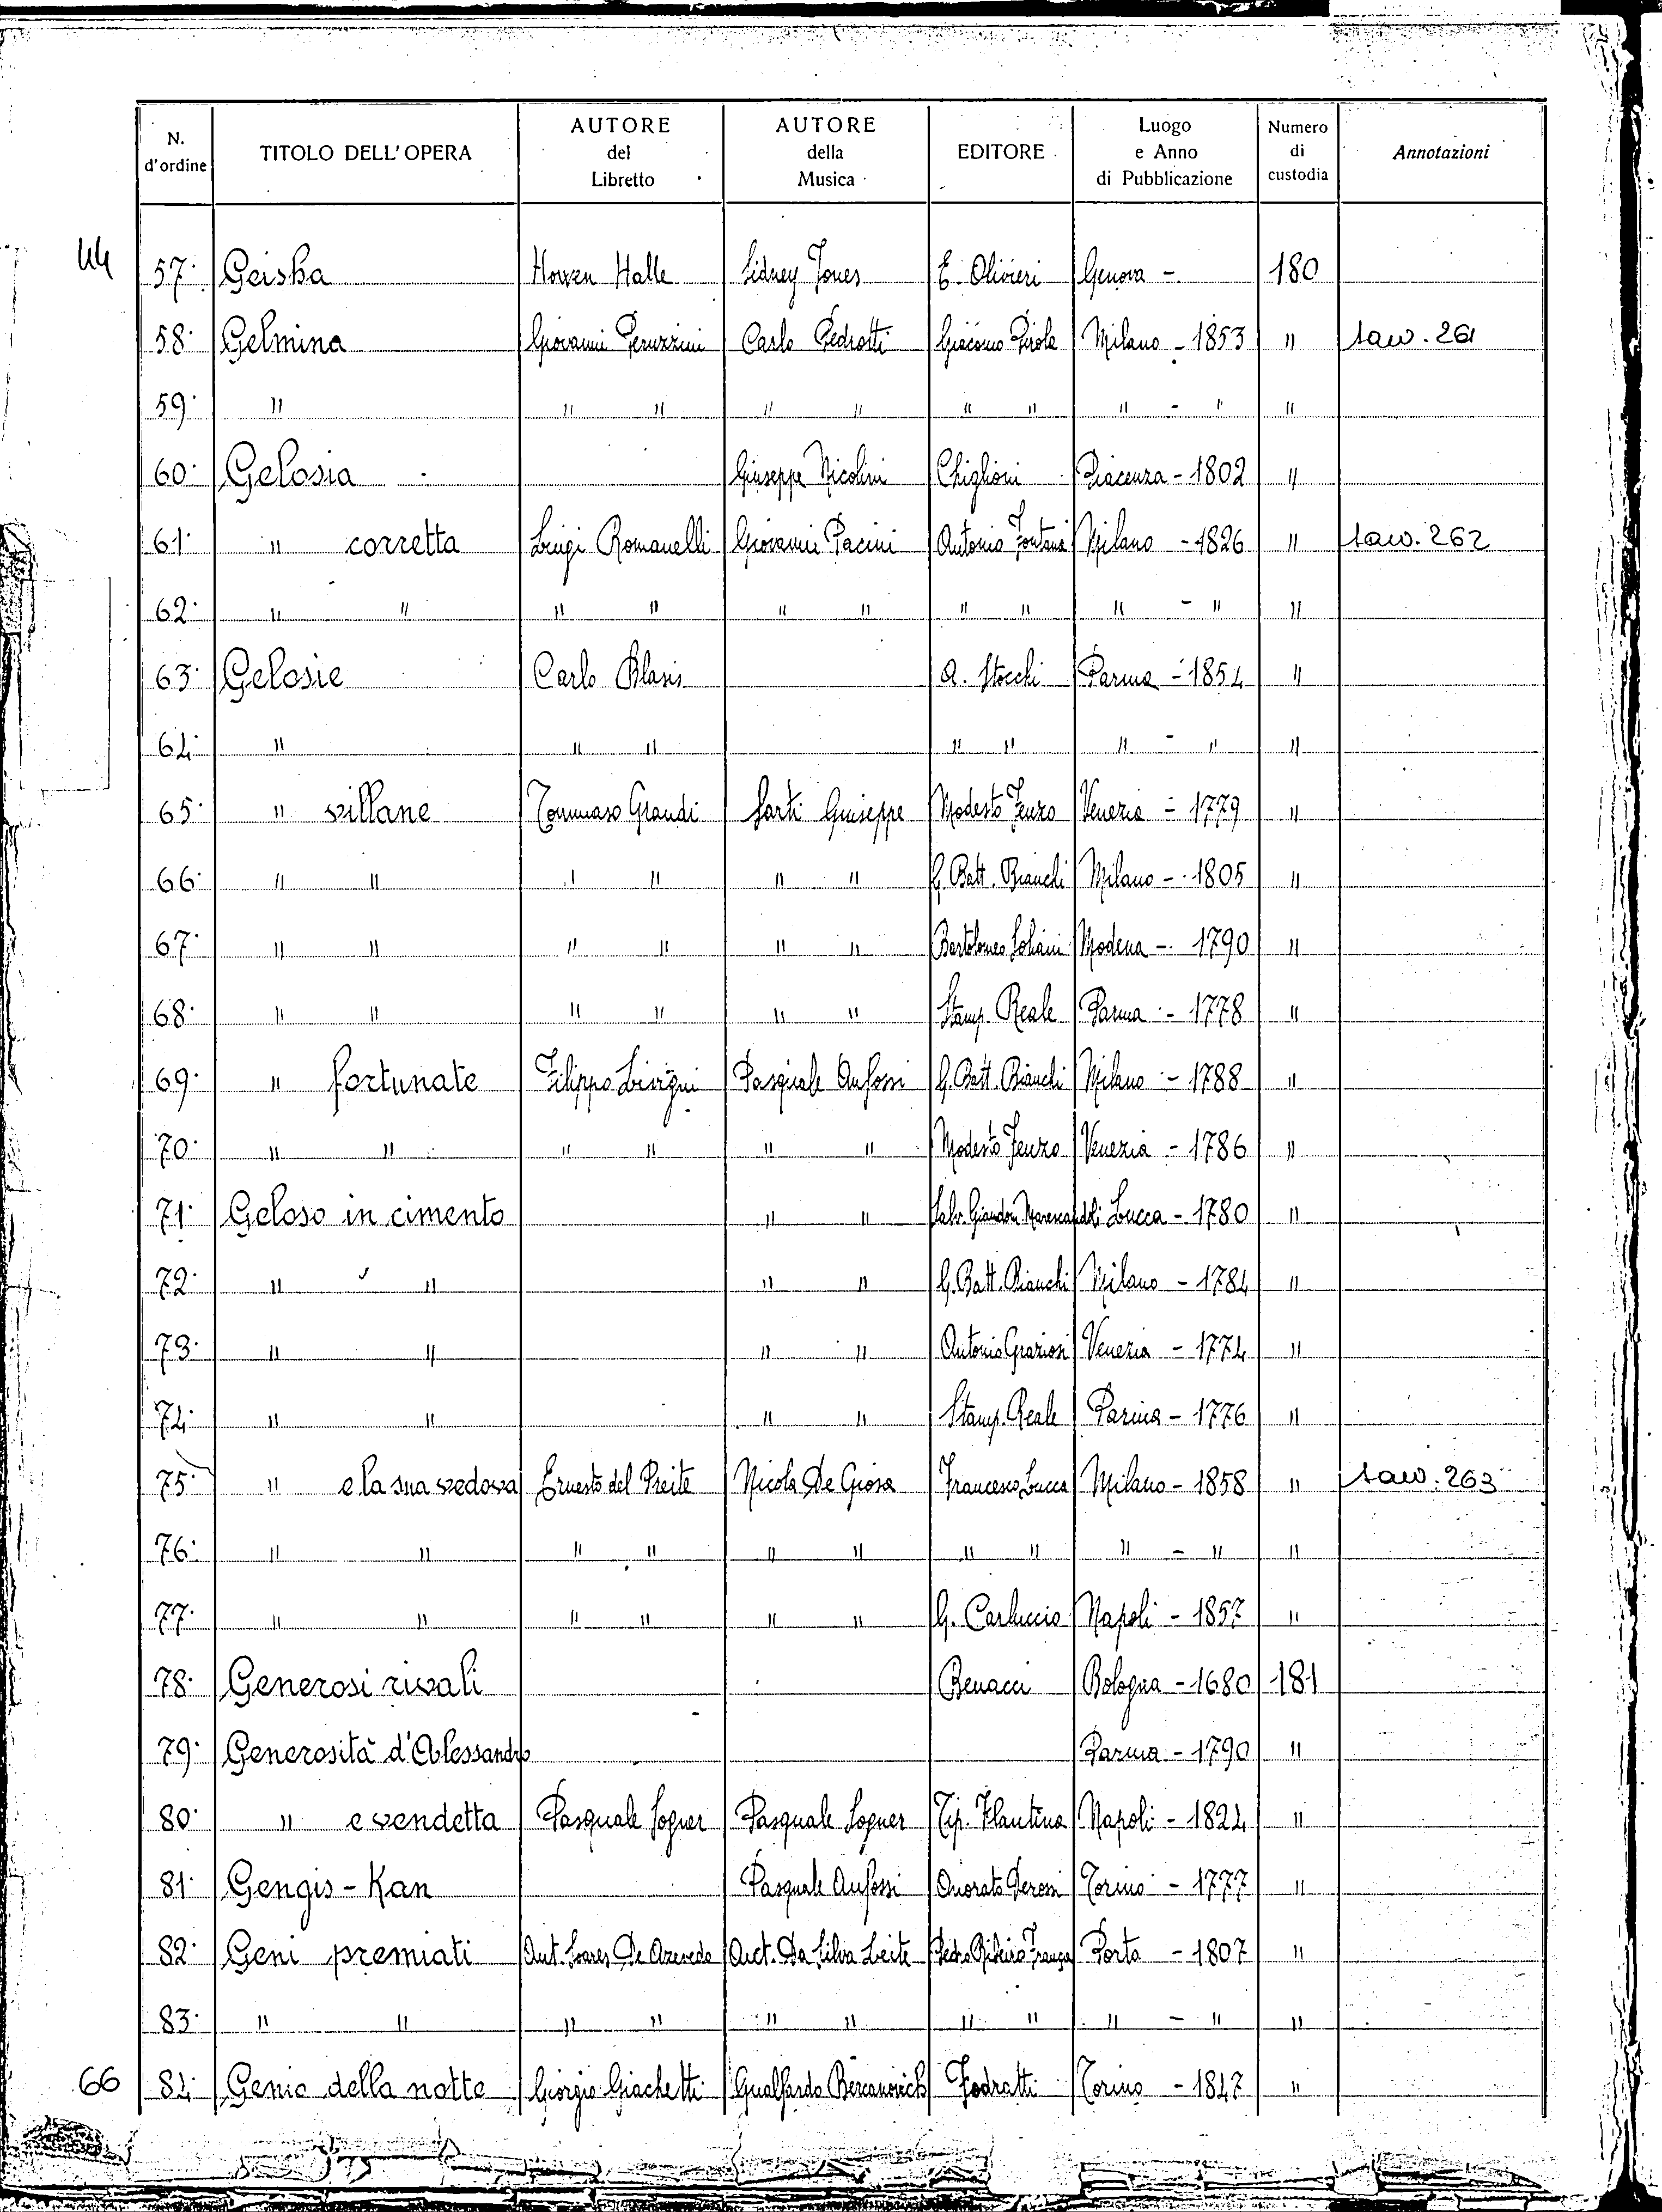 N. d'ordine | TITOLO DELL'OPERA | AUTORE del Libretto | AUTORE della Musica | EDITORE | Luogo e Anno di Pubblicazione | Numero di custodia | Annotazioni
44
57· Geisha | Howen Halle | Sidney Jones | E. Olivieri | Genova - | 180
58· Gelmina | Giovanni Peruzzini | Carlo Pedrotti | Giacomo Pirola | Milano - 1853 | " | saw. 261
59· " | " " | " " | " " | " - " | "
60· Gelosia | | Giuseppe Nicolini | Chiglioni | Piacenza - 1802 | "
61· " corretta | Luigi Romanelli | Giovanni Pacini | Antonio Fontana | Milano - 1826 | " | saw. 262
62· " " | " " | " " | " " | " - " | "
63· Gelosie | Carlo Blasis | | A. Stocchi | Parma - 1854 | "
64· " | " " | | " " | " - " | "
65· " villane | Tommaso Grandi | Sarti Giuseppe | Modesto Fenzo | Venezia - 1779 | "
66· " " | " " | " " | G. Batt. Bianchi | Milano - 1805 | "
67· " " | " " | " " | Bartolomeo Soliani | Modena - 1790 | "
68· " " | " " | " " | Stamp. Reale | Parma - 1778 | "
69· " fortunate | Filippo Livigni | Pasquale Anfossi | G. Batt. Bianchi | Milano - 1788 | "
70· " " | " " | " " | Modesto Fenzo | Venezia - 1786 | "
71· Geloso in cimento | | " " | Salv. Giandom. Marescandoli | Lucca - 1780 | "
72· " " | | " " | G. Batt. Bianchi | Milano - 1784 | "
73· " " | | " " | Antonio Graziosi | Venezia - 1774 | "
74· " " | | " " | Stamp. Reale | Parma - 1776 | "
75· " e la sua vedova | Ernesto del Preite | Nicola De Giosa | Francesco Lucca | Milano - 1858 | " | saw. 263
76· " " | " " | " " | " " | " - " | "
77· " " | " " | " " | G. Carluccio | Napoli - 1857 | "
78· Generosi rivali | | | Benacci | Bologna - 1680 | 181
79· Generosità d'Alessandro | | | | Parma - 1790 | "
80· " e vendetta | Pasquale Sogner | Pasquale Sogner | Tip. Flautina | Napoli - 1824 | "
81· Gengis - Kan | | Pasquale Anfossi | Onorato Derossi | Torino - 1777 | "
82· Geni premiati | Ant. Soares De Azevedo | Anct. Da Silva Leite | Pedro Ribeiro França | Porto - 1807 | "
83· " " | " " | " " | " " | " - " | "
66
84· Genio della notte | Giorgio Giachetti | Gualfardo Bercanovich | Fodratti | Torino - 1847 | "